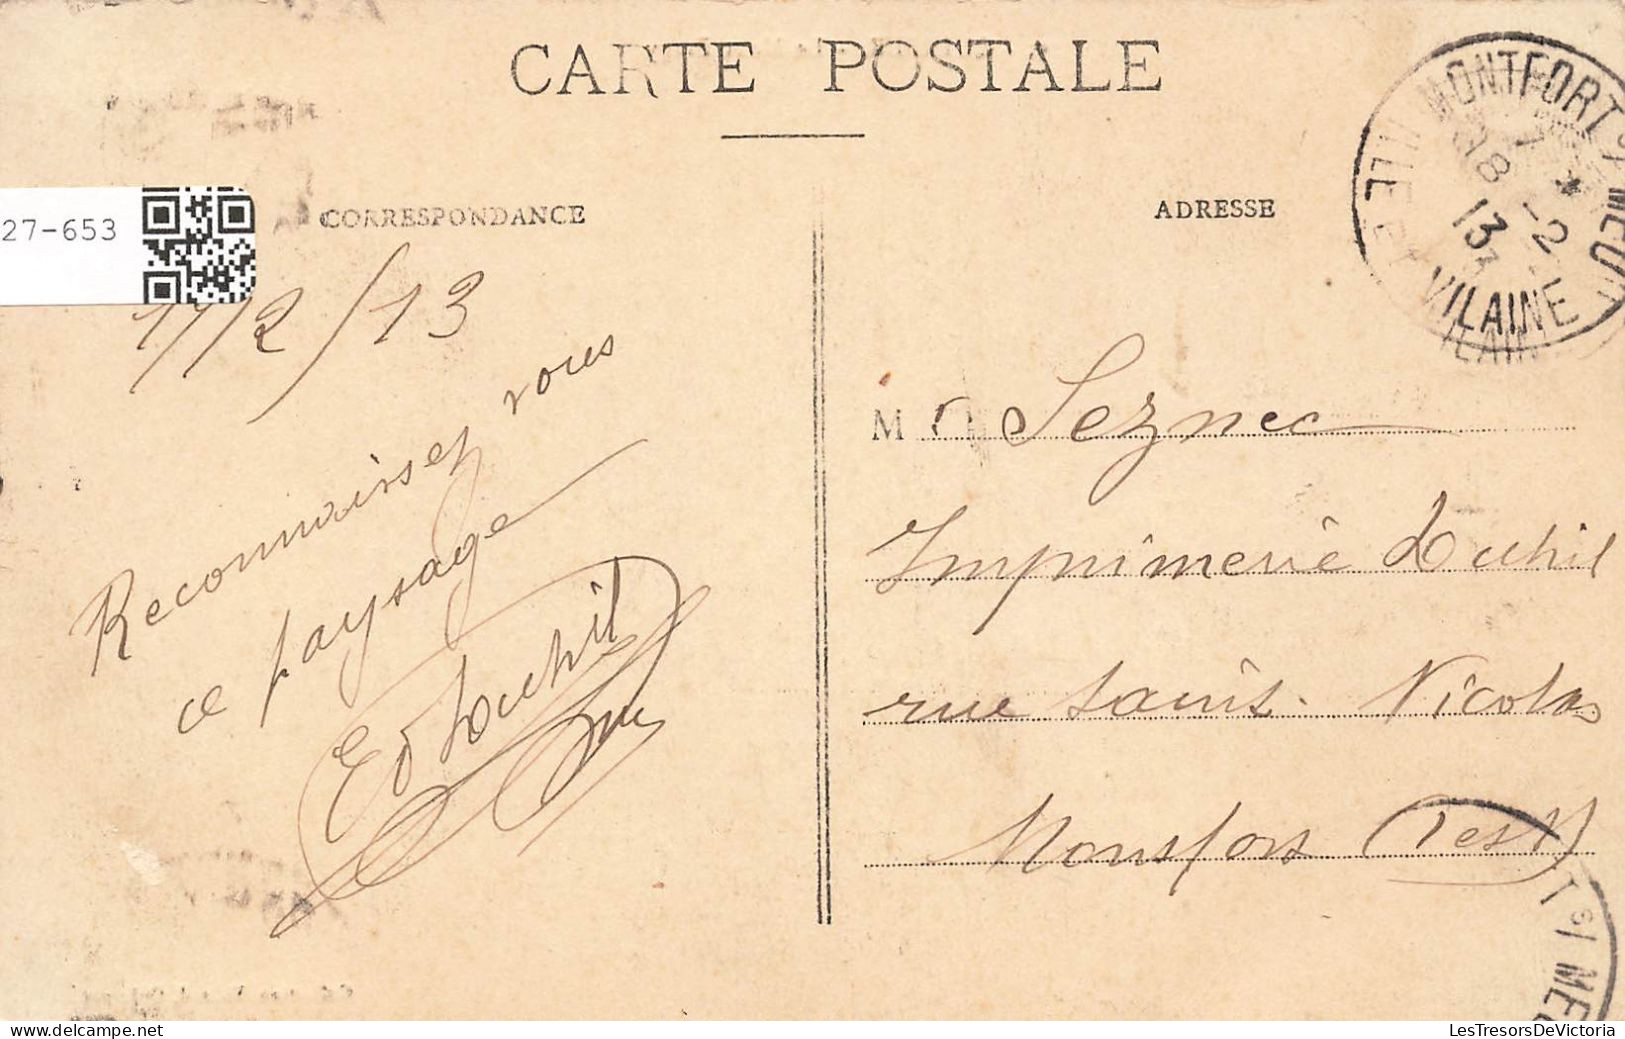 CARTE POSTALE
27-653
CORRESPONDANCE
ADRESSE
MONTFORT S/ MEU
7 * 
18 -2
13
ILLE ET VILAINE
17/2/13
Reconnaissez vous
ce paysage
Ed Luhil
Mr Seznec
Imprimerie Luhil
rue Saint-Nicolas
Montfort
T S/ MEU
LesTresorsDeVictoria